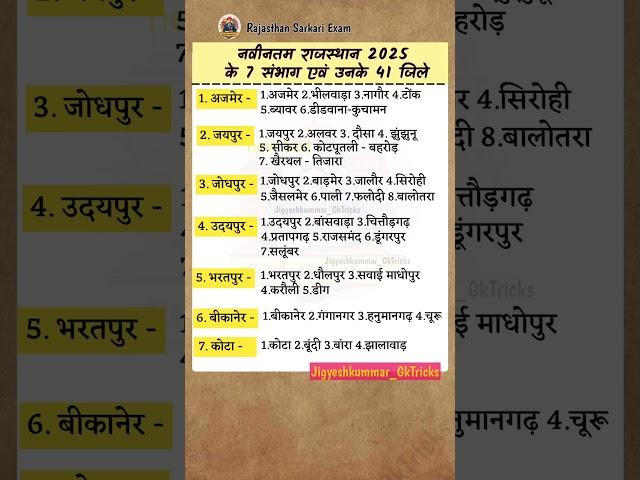 Rajasthan Sarkari Exam
नवीनतम राजस्थान 2025
के 7 संभाग एवं उनके 41 जिले
1. अजमेर - 1.अजमेर 2.भीलवाड़ा 3.नागौर 4.टोंक
5.ब्यावर 6.डीडवाना-कुचामन
2. जयपुर - 1.जयपुर 2.अलवर 3. दौसा 4. झुंझुनू
5. सीकर 6. कोटपूतली - बहरोड़
7. खैरथल - तिजारा
3. जोधपुर - 1.जोधपुर 2.बाड़मेर 3.जालौर 4.सिरोही
5.जैसलमेर 6.पाली 7.फलोदी 8.बालोतरा
Jigyeshkummar_GkTricks
4. उदयपुर - 1.उदयपुर 2.बांसवाड़ा 3.चित्तौड़गढ़
4.प्रतापगढ़ 5.राजसमंद 6.डूंगरपुर
7.सलूंबर
Jigyeshkummar_GkTricks
5. भरतपुर - 1.भरतपुर 2.धौलपुर 3.सवाई माधोपुर
4.करौली 5.डीग
6. बीकानेर - 1.बीकानेर 2.गंगानगर 3.हनुमानगढ़ 4.चूरू
7. कोटा - 1.कोटा 2.बूंदी 3.बांरा 4.झालावाड़
Jigyeshkummar_GkTricks
3. जोधपुर -
4. उदयपुर -
5. भरतपुर -
6. बीकानेर -
करोड़
4.सिरोही
8.बालोतरा
GkTricks
माधोपुर
4.चूरू